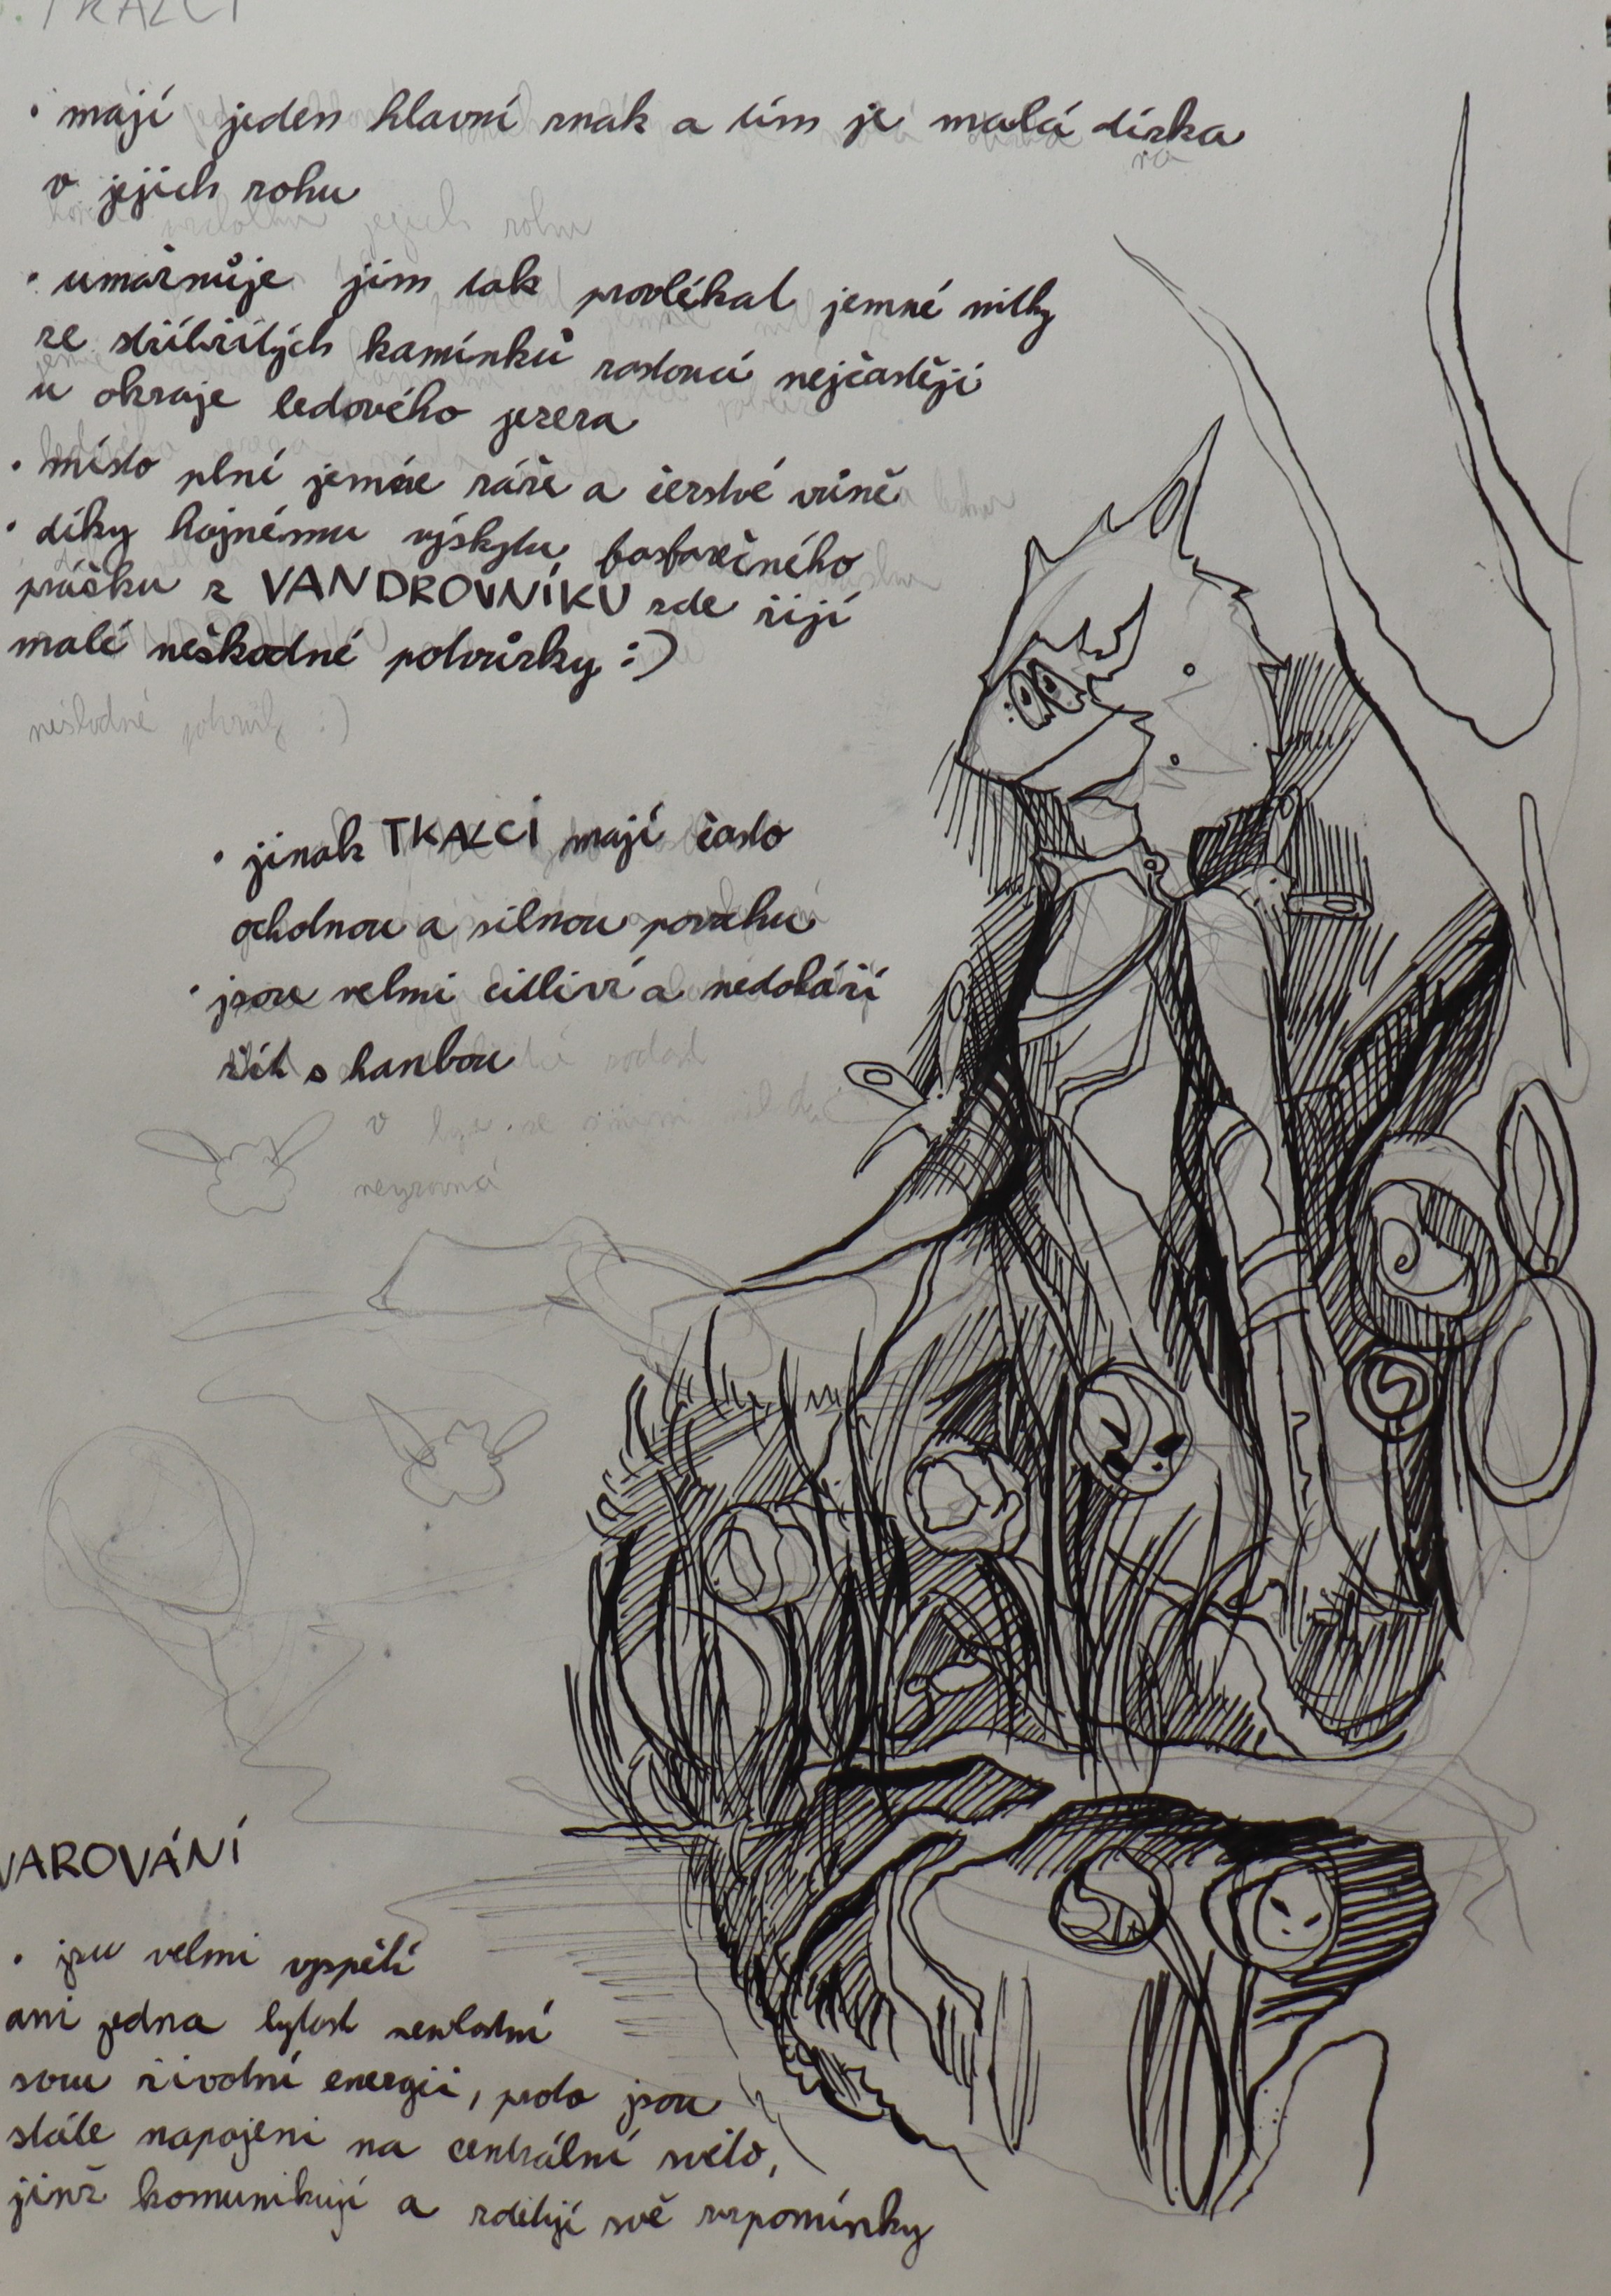 TKALCI
• mají jeden hlavní znak a tím je malá dírka
v jejich rohu
• umožnuje jim tak provlékat jemné nitky
ze stříbřitých kamínků rostoucí nejčastěji
u okraje ledového jezera
• místo plní jemné záře a čerstvé vůně
• díky hojnému výskytu fosforečného
prášku z VANDROVNÍKU zde žijí
malé neškodné potvůrky :)
neškodné potvůrky :)
• jinak TKALCI mají často
ochotnou a silnou povahu
• jsou velmi citliví a nedokáží
žít s hanbou
nevyrovná
VAROVÁNÍ
• jsu velmi vyspělí
ani jedna bytost nevlastní
svou životní energii, proto jsou
stále napojeni na centrální světlo,
jímž komunikují a sdílejí své vzpomínky